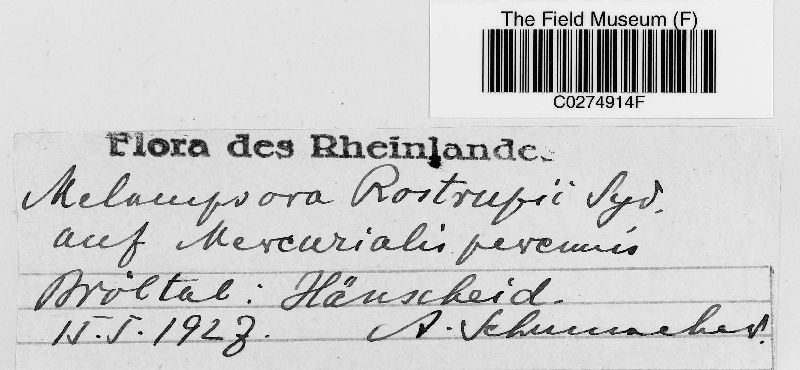 The Field Museum (F)
C0274914F
Flora des Rheinlande.
Melampsora Rostrupii Syd.
auf Mercurialis perennis
Bröltal: Hänscheid.
15.5.1927. A. Schumacher.